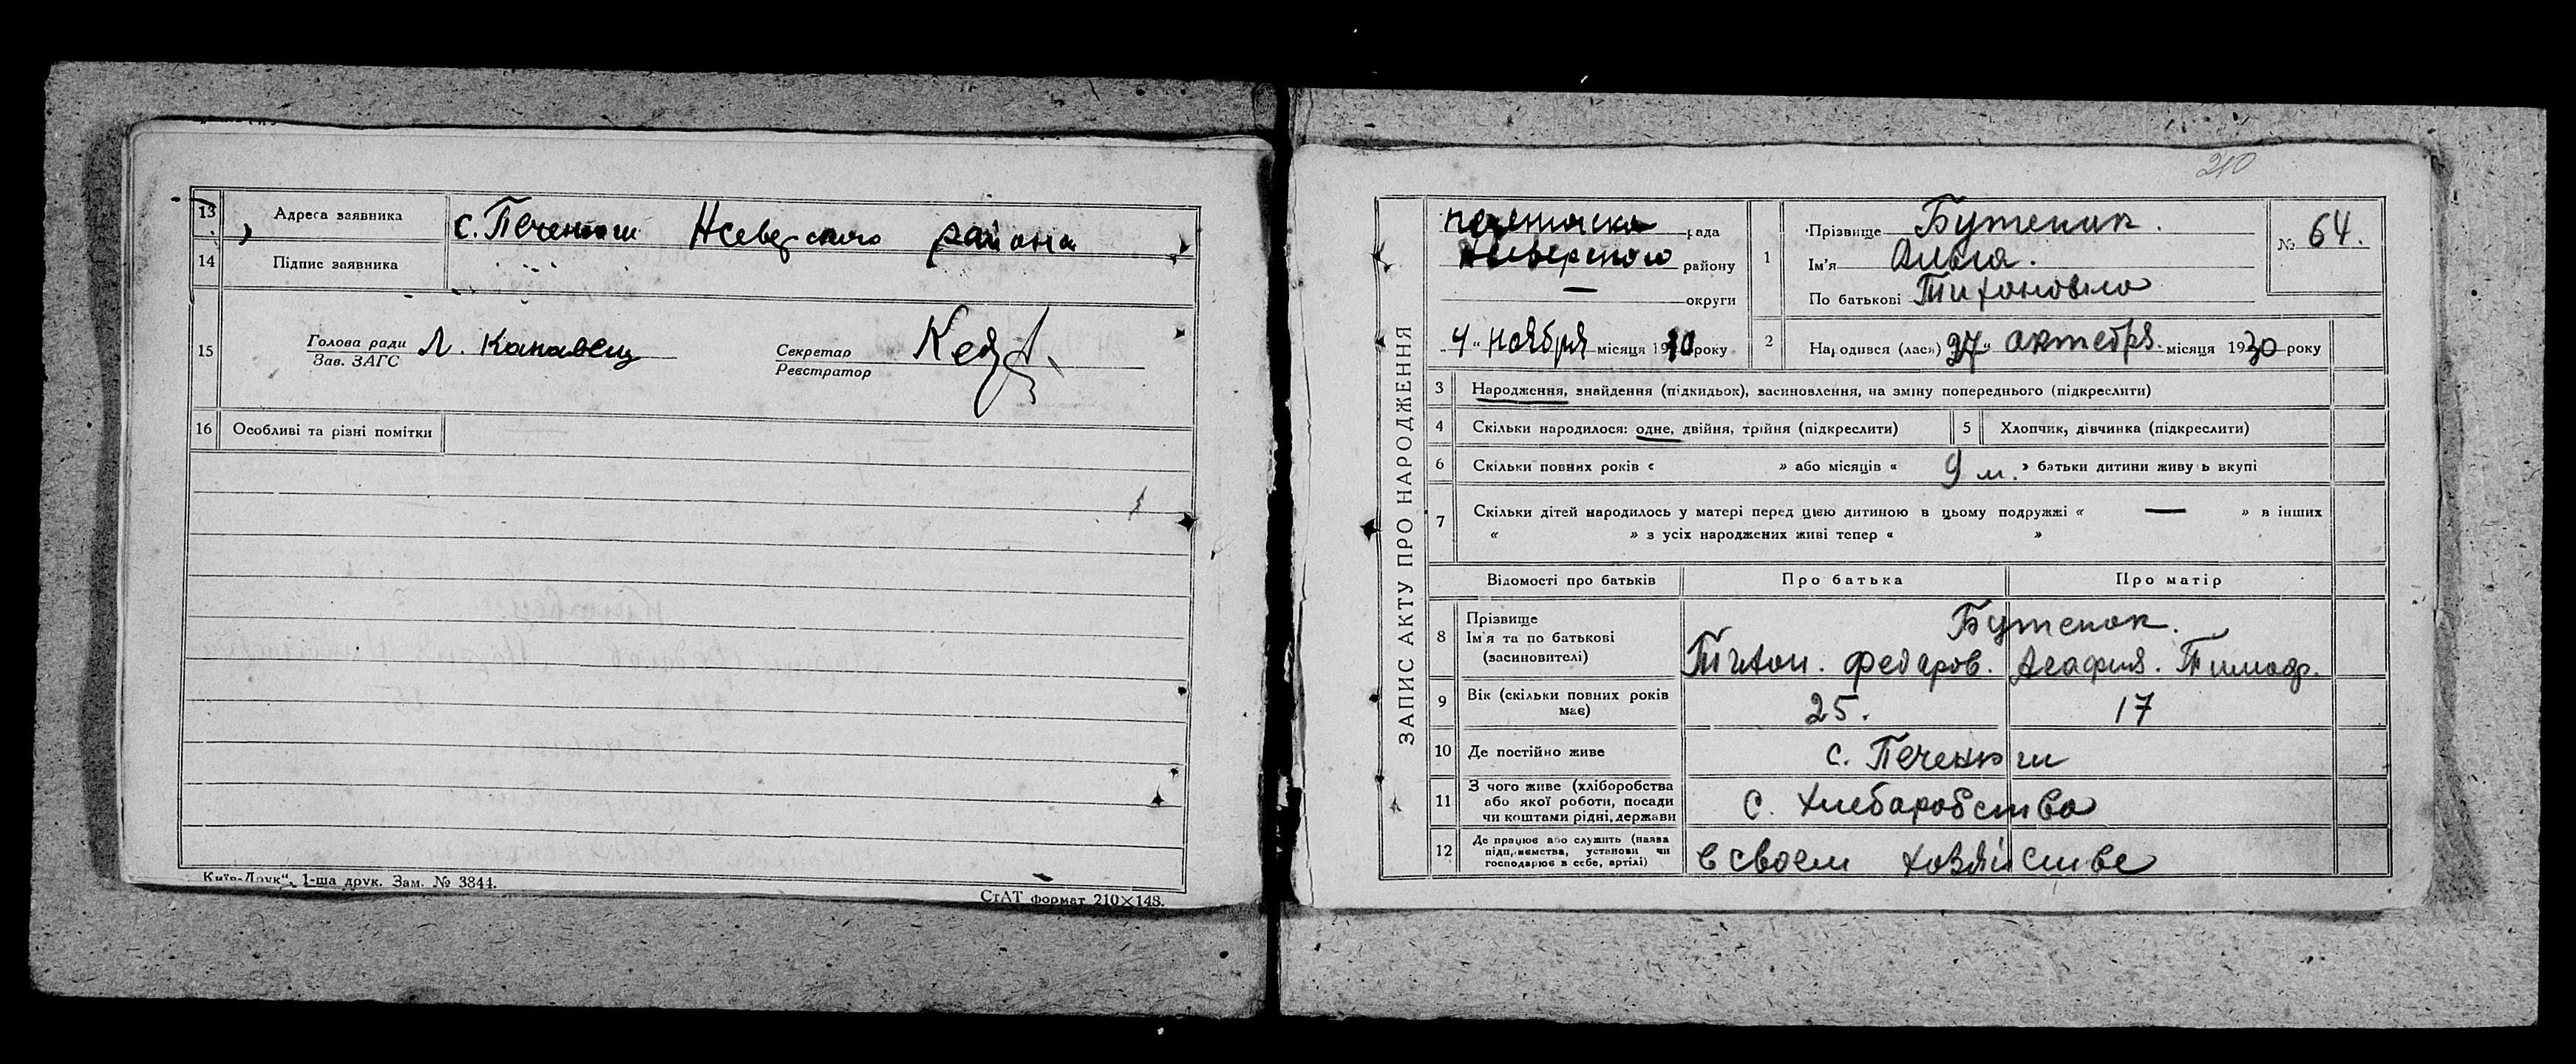 13 Адреса заявника с. Печенюги Нсеверского района
14 Підпис заявника
15 Голова ради Зав. ЗАГС Секретар Реєстратор
16 Особливі та різні помітки
Київ-Друк", 1-ша друк. Зам. № 3844.
СтАТ формат 210×148.
210
ЗАПИС АКТУ ПРО НАРОДЖЕННЯ
рада
Нсеверского району
— округи
4 " ноября місяця 1930 року
1 Прізвище Бутенок.
Ім'я Ольга.
По батькові Тихоновна
№ 64.
2 Народився (лася) 27 " октебря місяця 1930 року
3 Народження, знайдення (підкидьок), засиновлення, на зміну попереднього (підкреслити)
4 Скільки народилося: одне, двійня, трійня (підкреслити)
5 Хлопчик, дівчинка (підкреслити)
6 Скільки повних років « » або місяців « 9 м. » батьки дитини живуть вкупі
7 Скільки дітей народилось у матері перед цією дитиною в цьому подружжі « — » в інших
« » з усіх народжених живі тепер « »
Відомості про батьків Про батька Про матір
8 Прізвище Бутенок.
Ім'я та по батькові
(засиновителі) Тихон. Федаров. Агафия. Тимофр.
9 Вік (скільки повних років має) 25. 17
10 Де постійно живе с. Печенюги
11 З чого живе (хліборобства або якої роботи, посади чи коштами рідні, держави С. хлебаробства
12 Де працює або служить (назва підприємства, установи чи господарює в себе, артілі) в своем хозяйстве